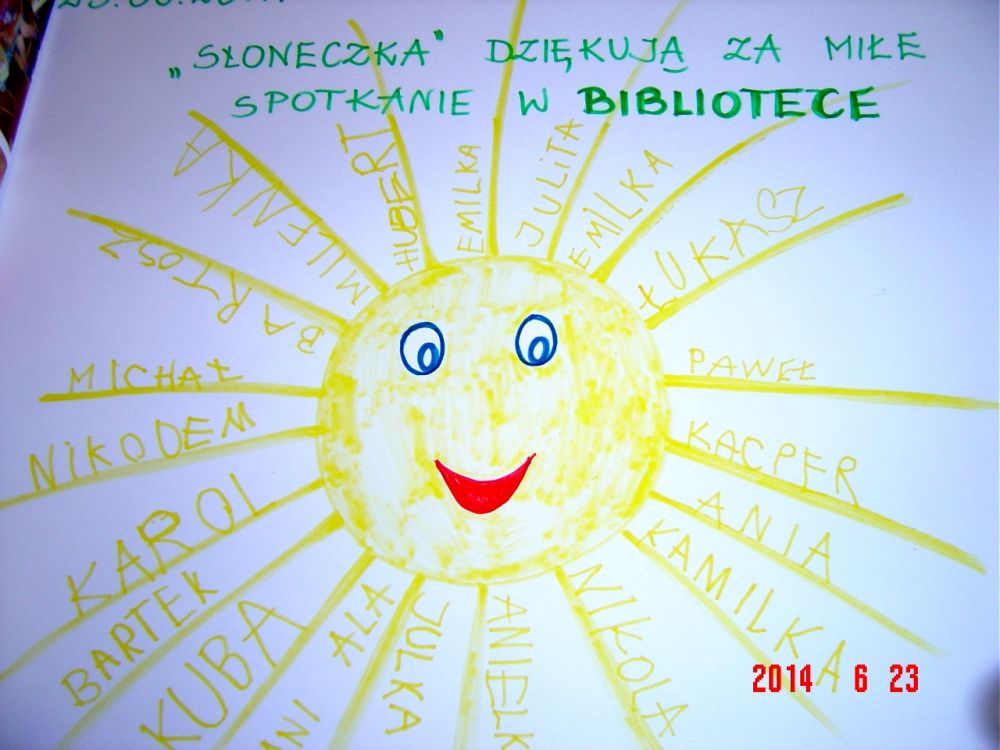 „SŁONECZKA" DZIĘKUJĄ ZA MIŁE
SPOTKANIE W BIBLIOTECE
BARTOSZ
MILENKA
HUBERT
EMILKA
JULITA
EMILKA
ŁUKASZ
MICHAŁ
PAWEŁ
NIKODEM
KACPER
KAROL
ANIA
BARTEK
KAMILKA
KUBA
ALA
JULKA
ANIELK
NIKOLA
ANI
2014 6 23